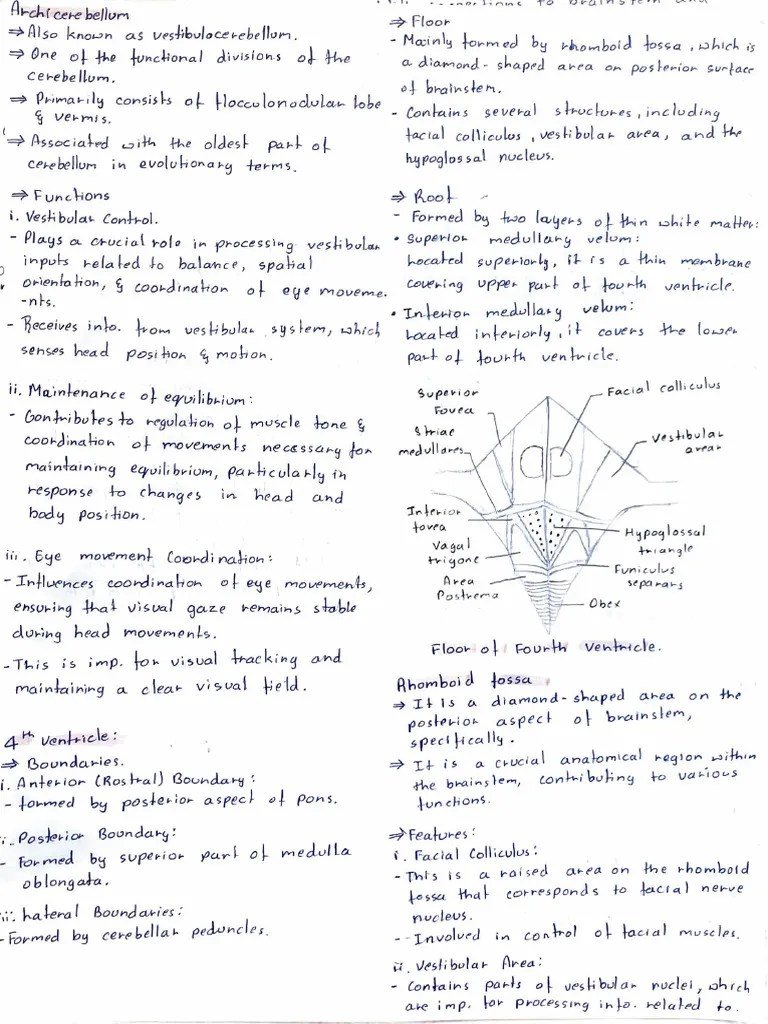 Archicerebellum
⇒ Also known as vestibulocerebellum.
⇒ One of the functional divisions of the
cerebellum.
⇒ Primarily consists of flocculonodular lobe
& vermis.
⇒ Associated with the oldest part of
cerebellum in evolutionary terms.
⇒ Functions
i. Vestibular Control.
- Plays a crucial role in processing vestibular
inputs related to balance, spatial
orientation, & coordination of eye moveme.
-nts.
- Receives info. from vestibular system, which
senses head position & motion.
ii. Maintenance of equilibrium:
- Contributes to regulation of muscle tone &
coordination of movements necessary for
maintaining equilibrium, particularly in
response to changes in head and
body position.
iii. Eye movement Coordination:
- Influences coordination of eye movements,
ensuring that visual gaze remains stable
during head movements.
- This is imp. for visual tracking and
maintaining a clear visual field.
4th Ventricle:
⇒ Boundaries.
i. Anterior (Rostral) Boundary:
- formed by posterior aspect of pons.
ii. Posterior Boundary:
- Formed by superior part of medulla
oblongata.
iii. Lateral Boundaries:
- Formed by cerebellar peduncles.
to brainstem and
⇒ Floor
- Mainly formed by rhomboid fossa, which is
a diamond-shaped area on posterior surface
of brainstem.
- Contains several structures, including
facial colliculus, vestibular area, and the
hypoglossal nucleus.
⇒ Roof
- Formed by two layers of thin white matter:
• Superior medullary velum:
Located superiorly, it is a thin membrane
covering upper part of fourth ventricle.
• Inferior medullary velum:
Located inferiorly, it covers the lower
part of fourth ventricle.
Superior
Fovea
Facial colliculus
Striae
medullares
Vestibular
area
Inferior
fovea
Hypoglossal
triangle
Vagal
trigone
Funiculus
separans
Area
Postrema
Obex
Floor of Fourth Ventricle.
Rhomboid fossa
⇒ It is a diamond-shaped area on the
posterior aspect of brainstem,
specifically.
⇒ It is a crucial anatomical region within
the brainstem, contributing to various
functions.
⇒ Features:
i. Facial Colliculus:
- This is a raised area on the rhomboid
fossa that corresponds to facial nerve
nucleus.
-- Involved in control of facial muscles.
ii. Vestibular Area:
- Contains parts of vestibular nuclei, which
are imp. for processing info. related to.